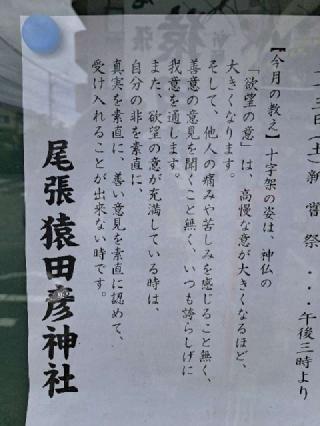 十三日(土)新嘗祭・・・午後三時より
【今月の教え】十字架の姿は、神仏の
「欲望の意」は、高慢な意が大きくなるほど、
大きくなります。
そして、他人の痛みや苦しみを感じること無く、
善意の意見を聞くこと無く、いつも誇らしげに
我意を通します。
また、欲望の意が充満している時は、
自分の非を素直に、
真実を素直に、善い意見を素直に認めて、
受け入れることが出来ない時です。
尾張猿田彦神社